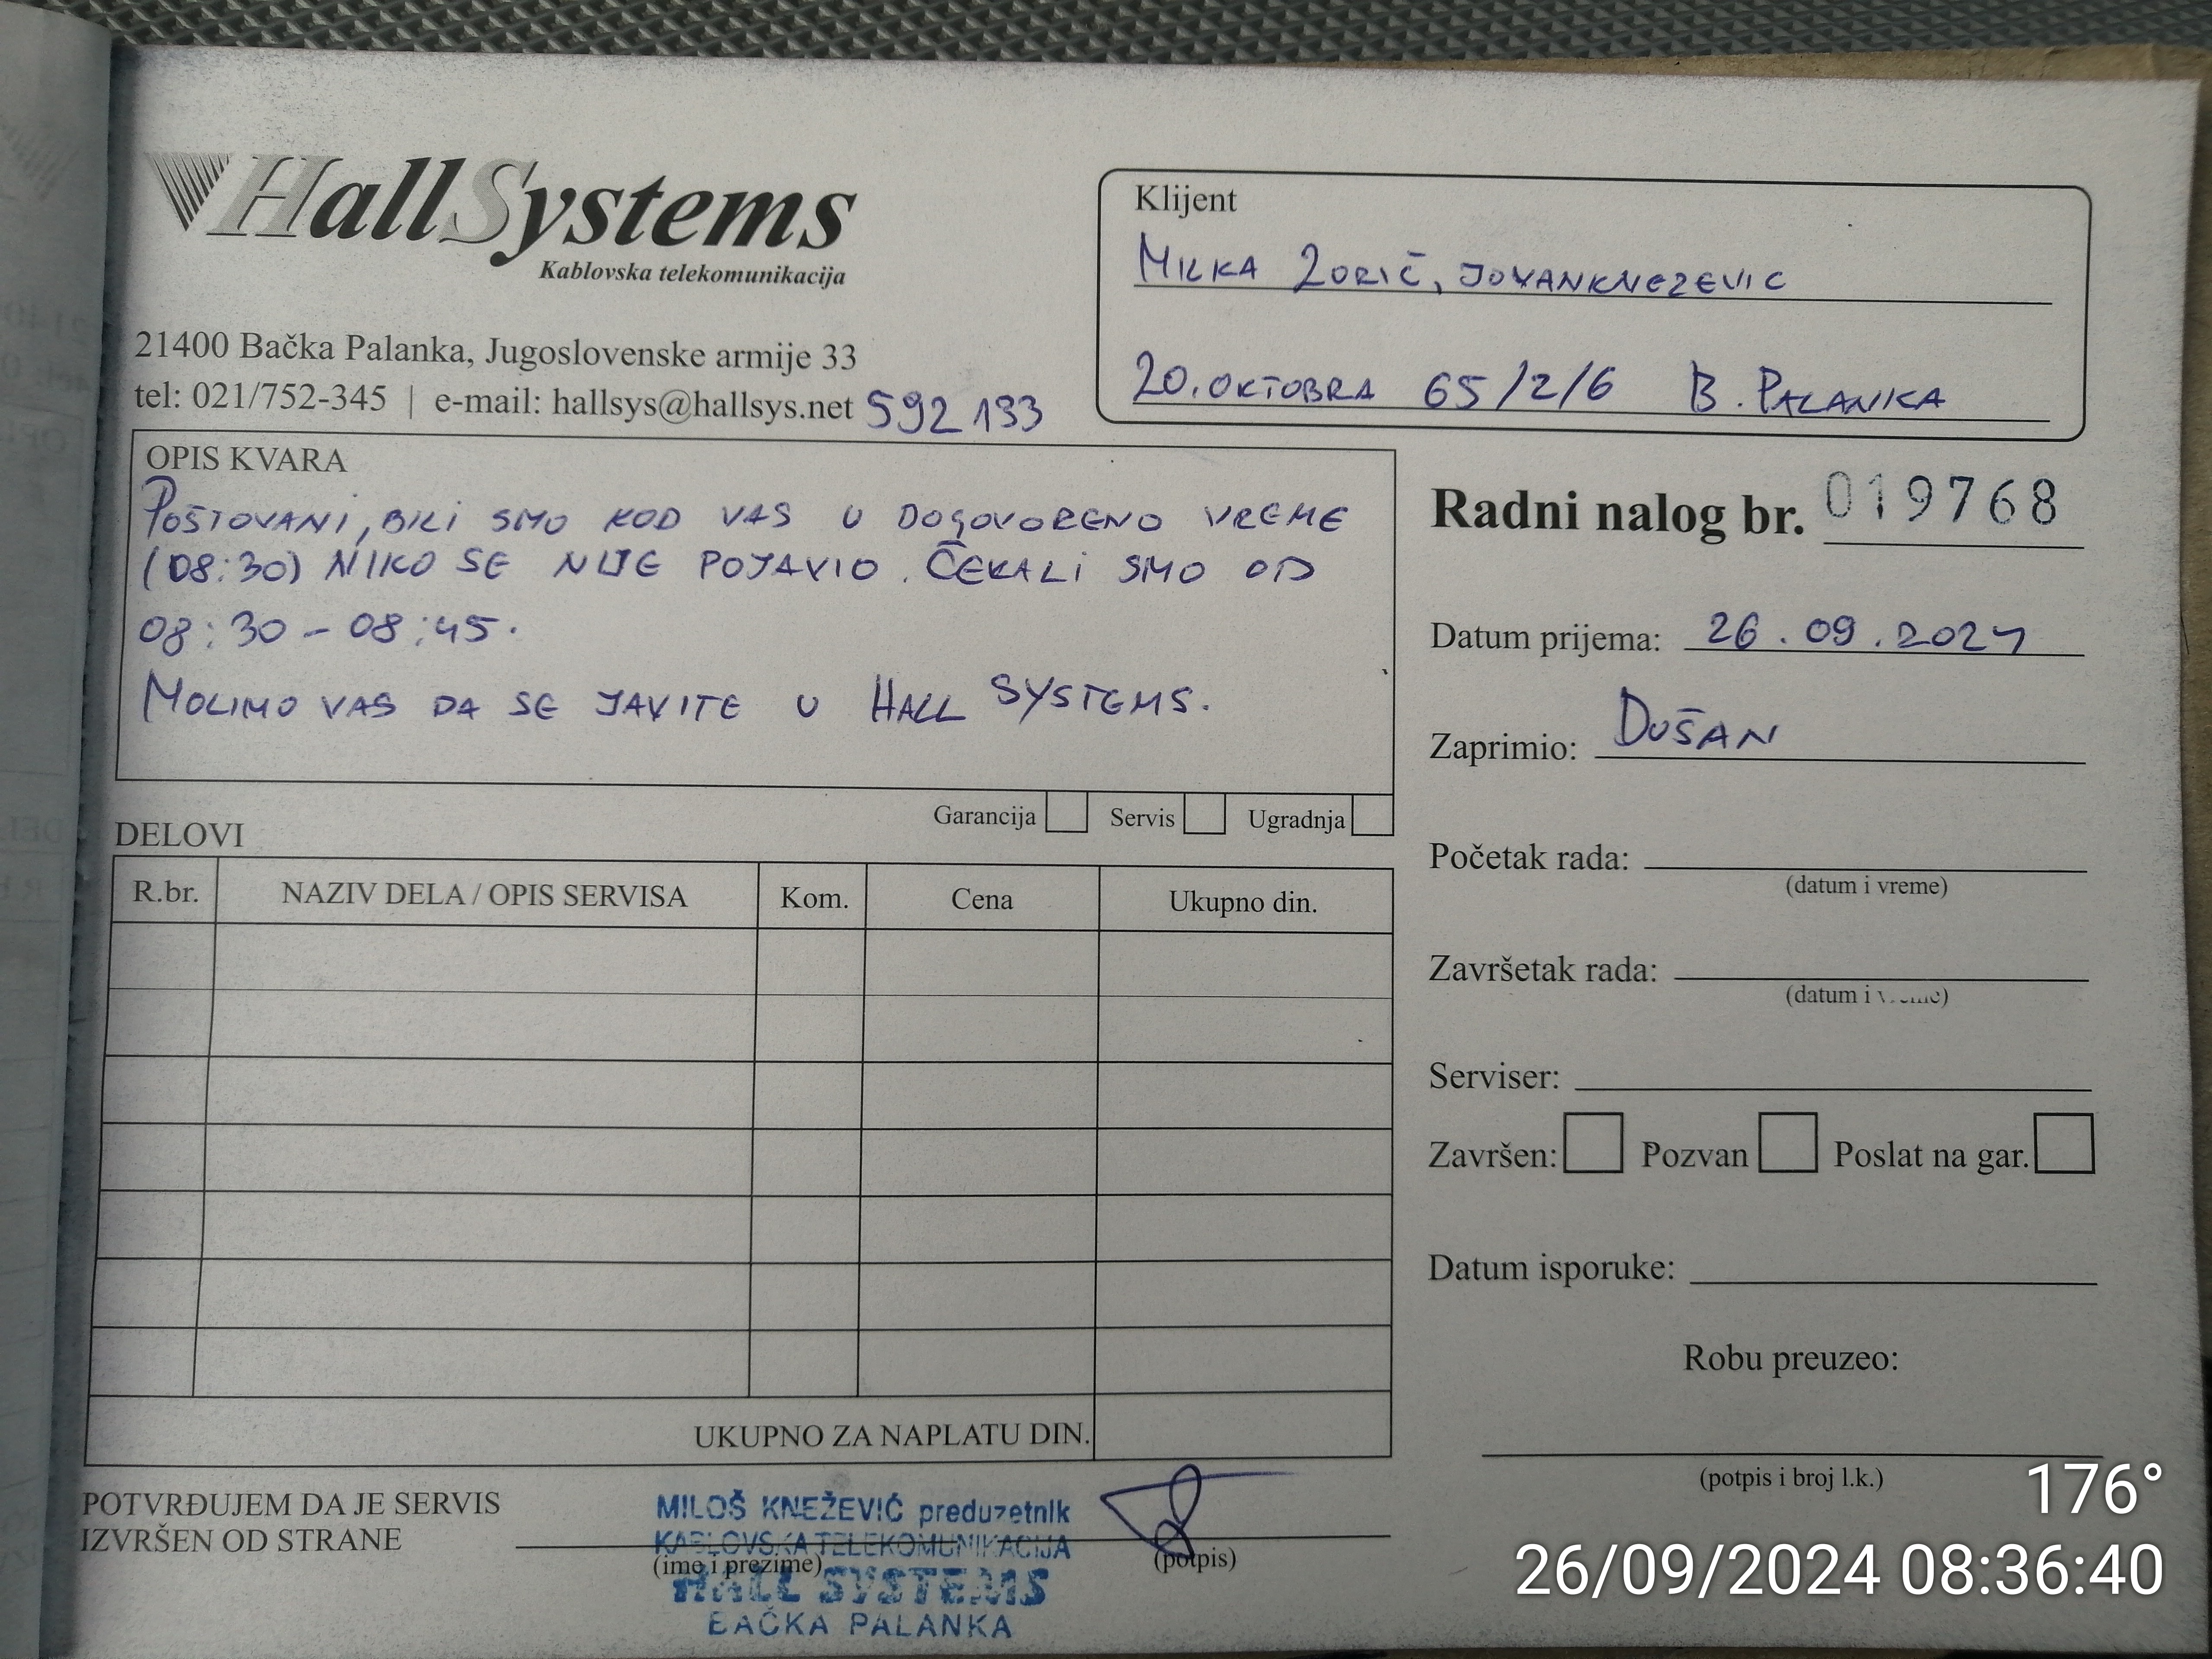 HallSystems
Kablovska telekomunikacija
21400 Bačka Palanka, Jugoslovenske armije 33
tel: 021/752-345 | e-mail: hallsys@hallsys.net 592 133
Klijent
MILKA ZORIČ, JOVANKNEZEVIC
20. OKTOBRA 65/2/6 B. PALANKA
OPIS KVARA
POŠTOVANI, BILI SMO KOD VAS U DOGOVORENO VREME
(08:30) NIKO SE NIJE POJAVIO. ČEKALI SMO OD
08:30 - 08:45.
MOLIMO VAS DA SE JAVITE U HALL SYSTEMS.
Garancija Servis Ugradnja
Radni nalog br. 019768
Datum prijema: 26.09.2024
Zaprimio: DUŠAN
Početak rada:
(datum i vreme)
Završetak rada:
(datum i vreme)
Serviser:
Završen: Pozvan Poslat na gar.
Datum isporuke:
Robu preuzeo:
(potpis i broj l.k.)
DELOVI
R.br. NAZIV DELA / OPIS SERVISA Kom. Cena Ukupno din.
UKUPNO ZA NAPLATU DIN.
POTVRĐUJEM DA JE SERVIS
IZVRŠEN OD STRANE
(ime i prezime) (potpis)
MILOŠ KNEŽEVIĆ preduzetnik
KABLOVSKA TELEKOMUNIKACIJA
HALL SYSTEMS
BAČKA PALANKA
176°
26/09/2024 08:36:40